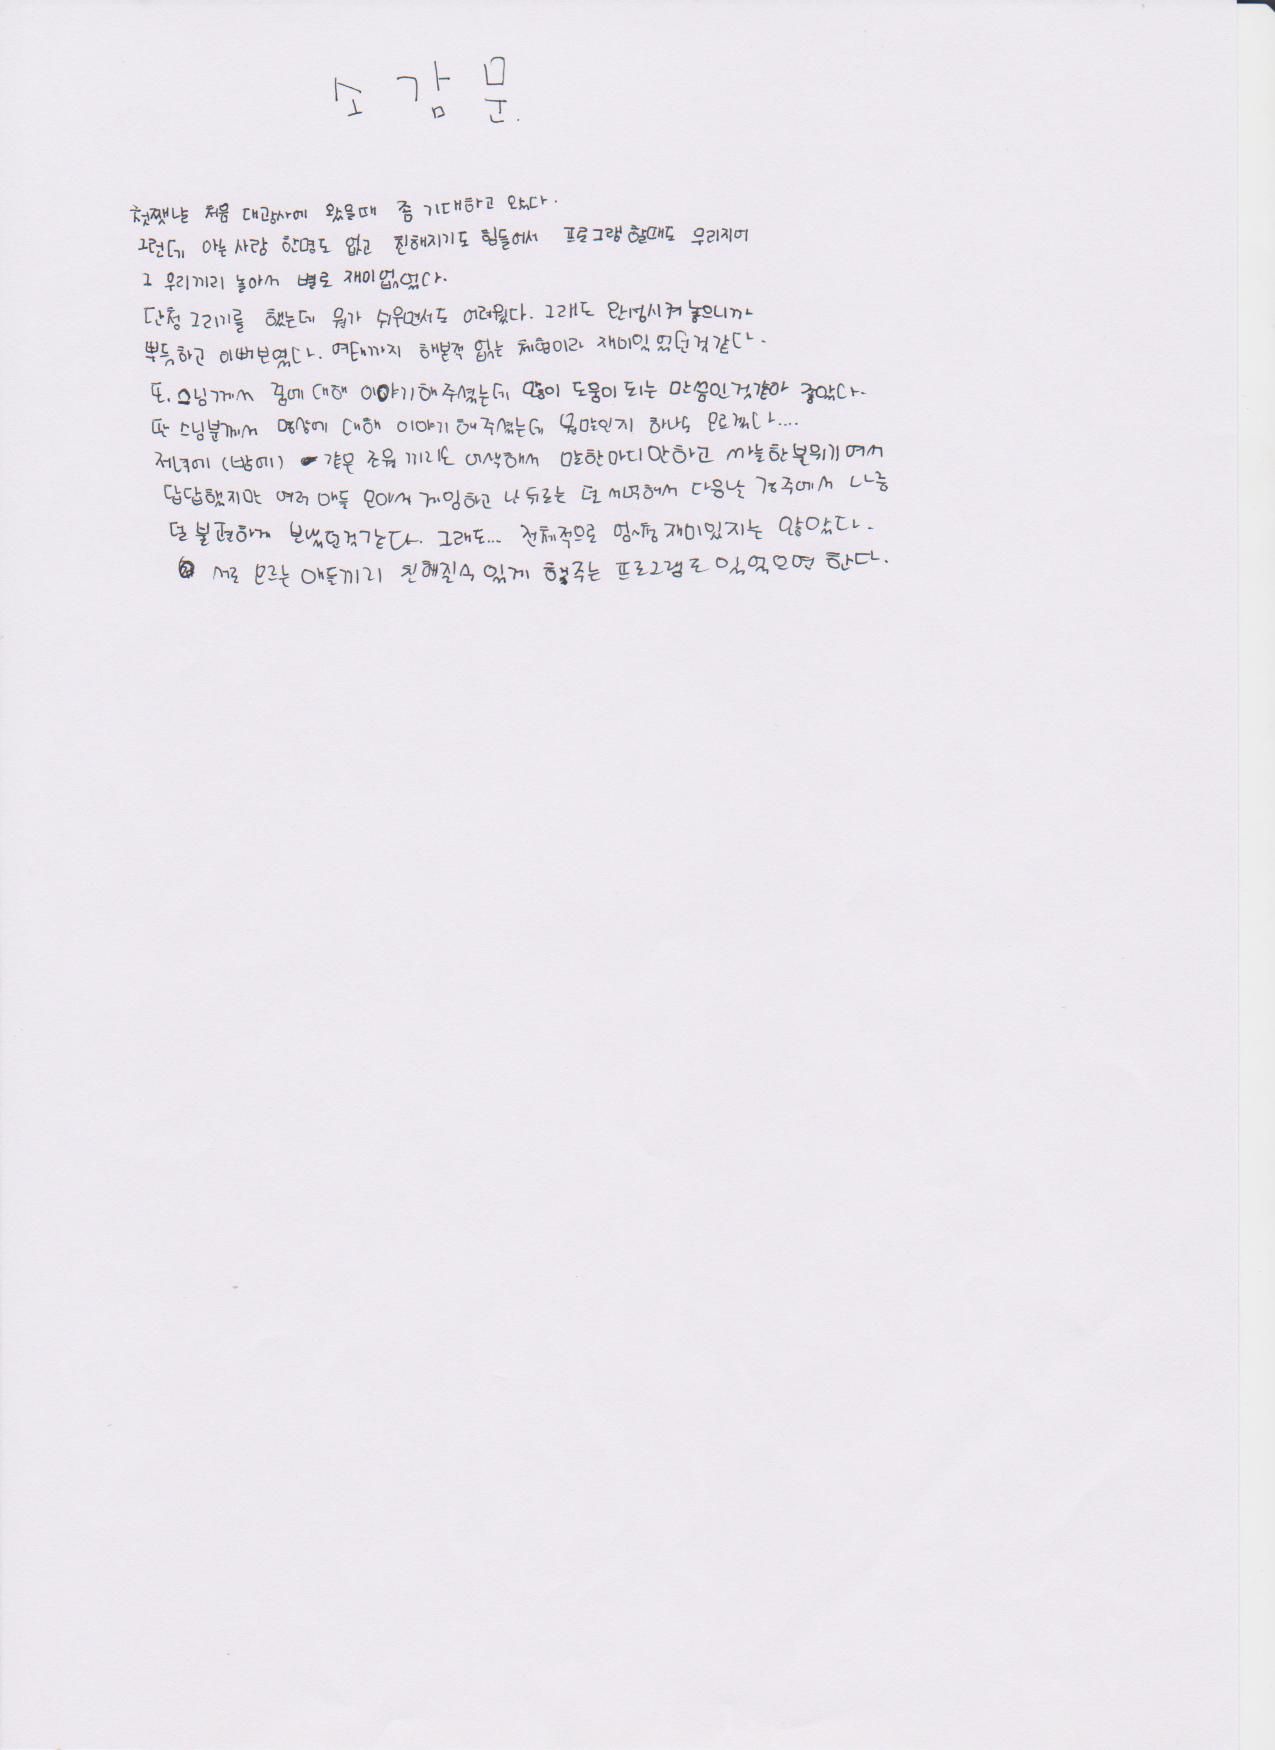 소감문.
첫쨋날 처음 대광사에 왔을때 좀 기대하고 왔다.
그런데 아는 사람 한명도 없고 친해지기도 힘들어서 프로그램 할때도 우리지어
그 우리끼리 놀아서 별로 재미없었다.
단청 그리기를 했는데 뭔가 쉬우면서도 어려웠다. 그래도 완성시켜 놓으니까
뿌듯하고 이뻐보였다. 여태까지 해본적 없는 체험이라 재미있었던것같다.
또, 스님께서 꿈에 대해 이야기해주셨는데 많이 도움이 되는 말씀인것같아 좋았다.
딴 스님분께서 명상에 대해 이야기 해주셨는데 뭔말인지 하나도 모르겠다....
저녁에 (밤에) 같은 조원 끼리도 어색해서 말한마디 안하고 싸늘한 분위기여서
답답했지만 여러 애들 모아서 게임하고 난 뒤로는 덜 서먹해서 다음날 경주에서 나름
덜 불편하게 보냈던것같다. 그래도... 전체적으로 엄청 재미있지는 않았다.
서로 모르는 애들끼리 친해질수 있게 해주는 프로그램도 있었으면 한다.